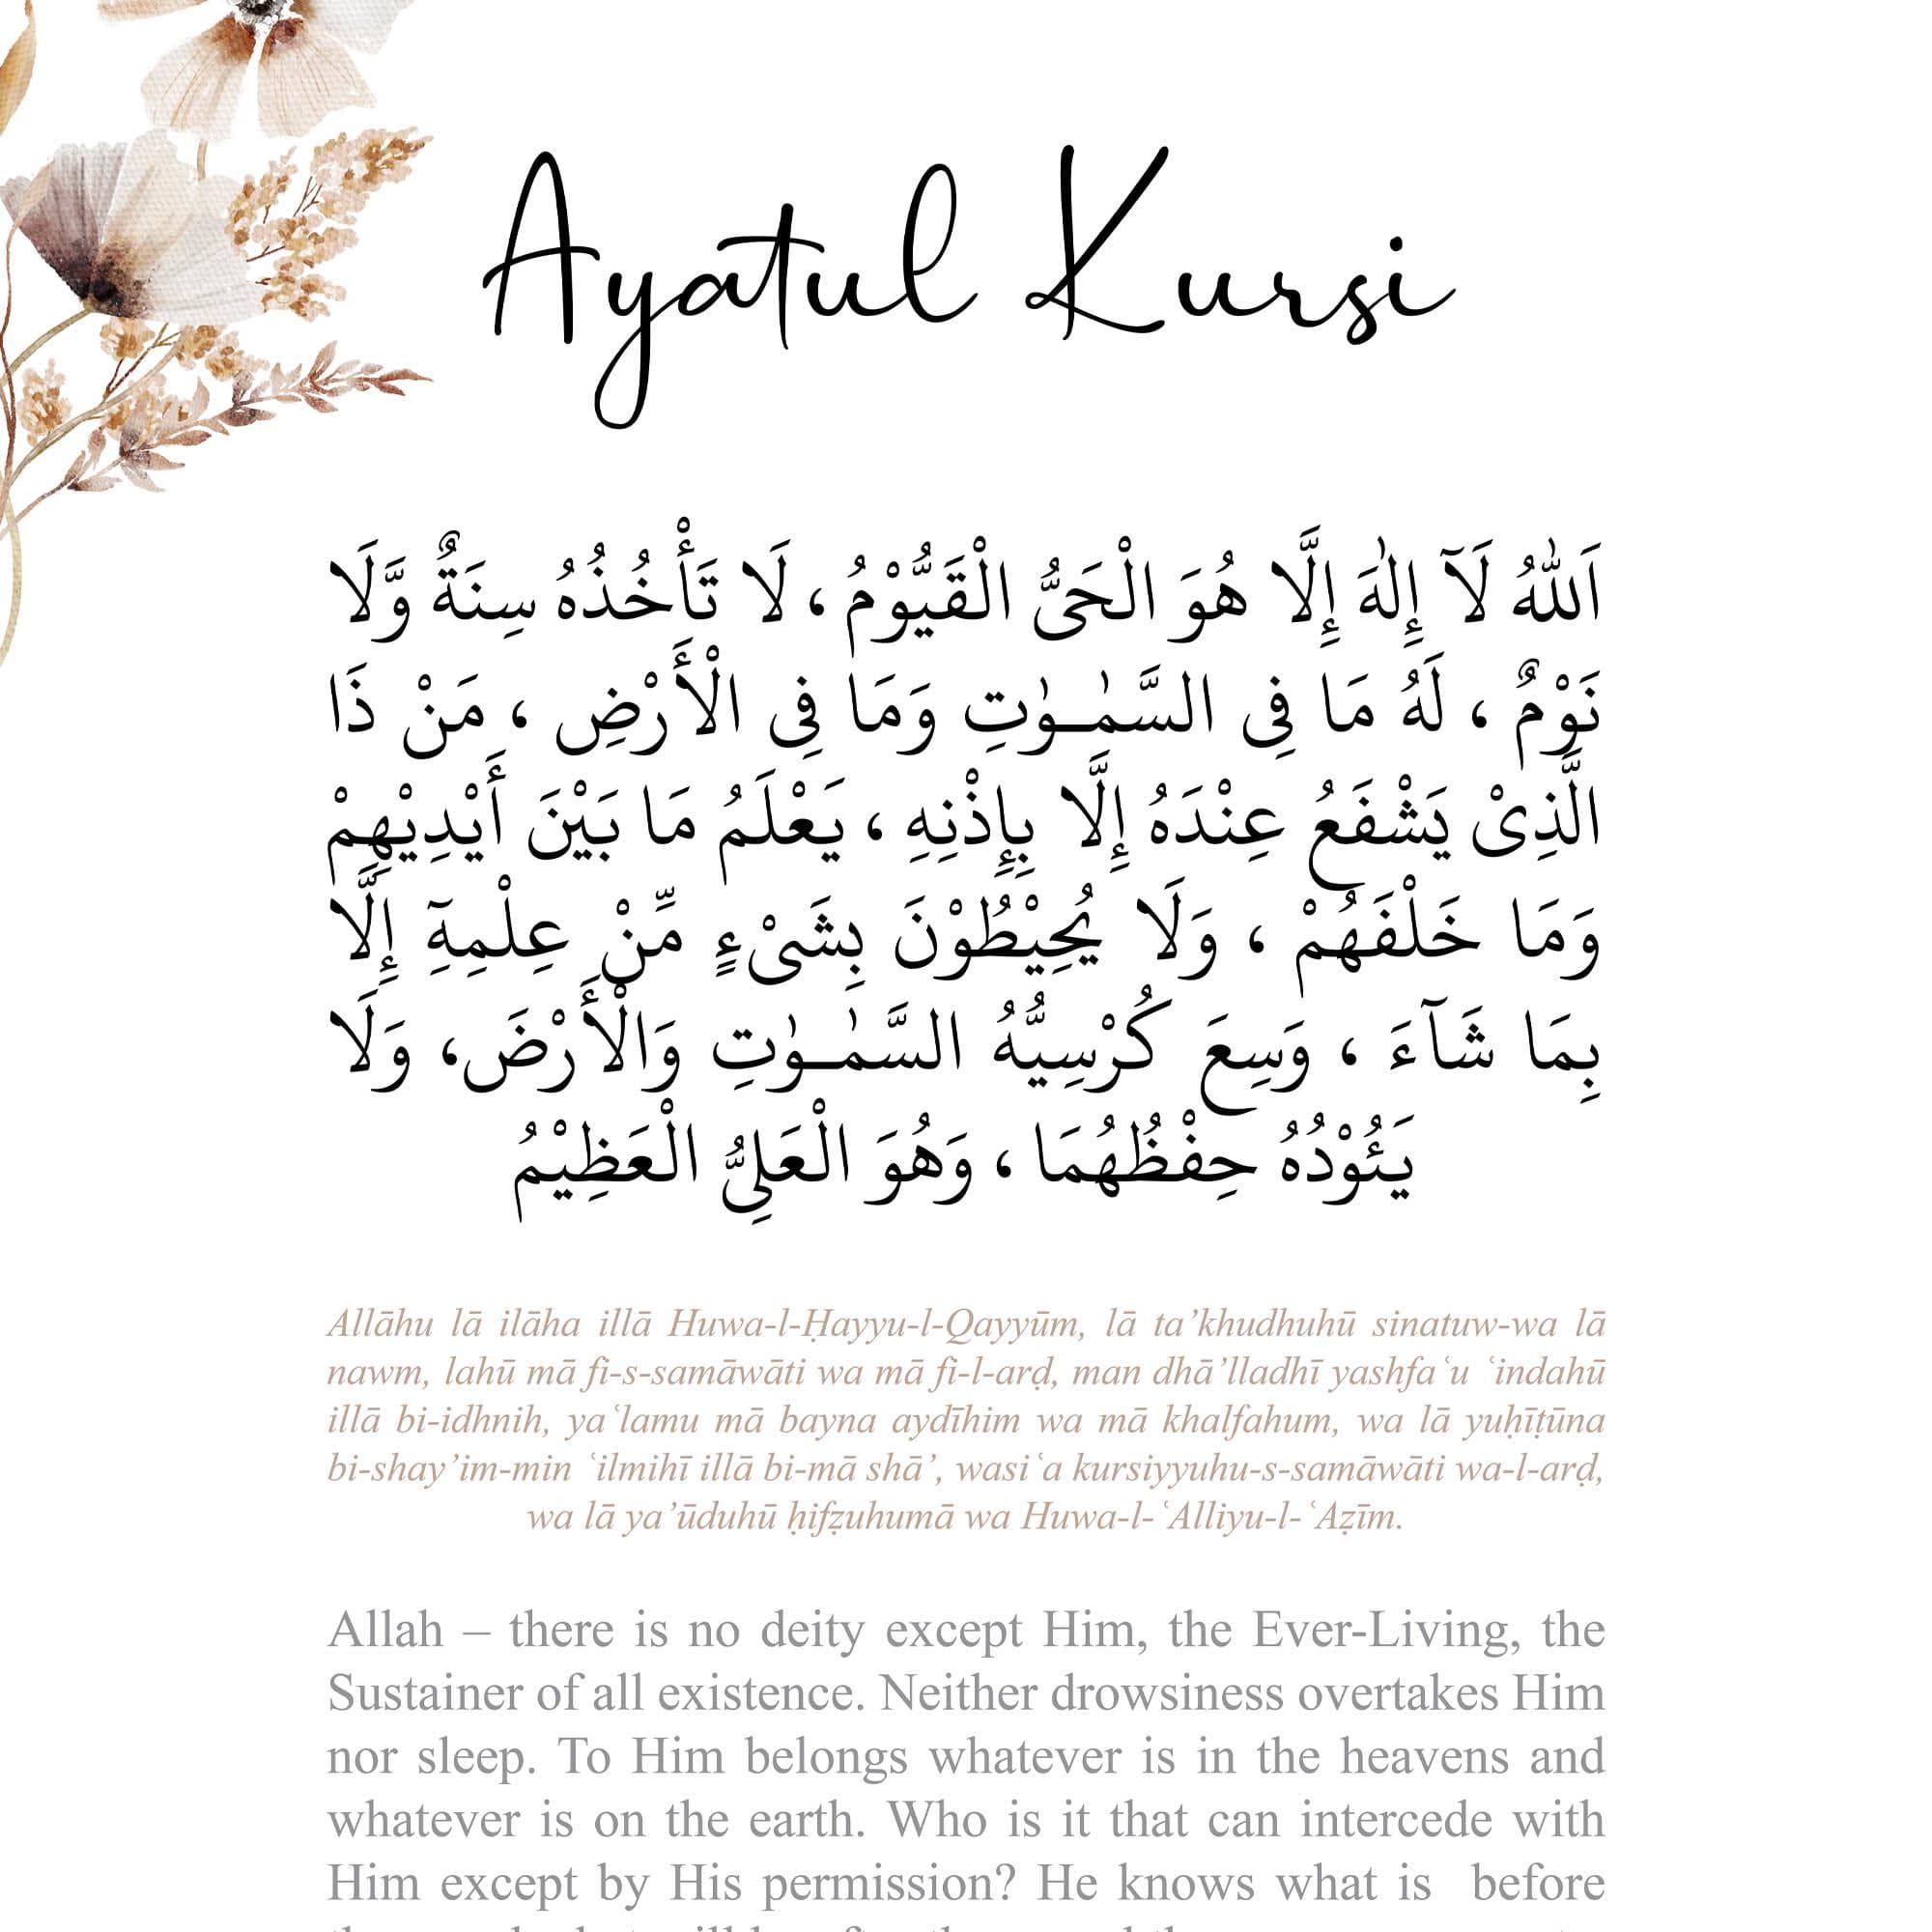 Ayatul Kursi
اَللّٰهُ لَآ إِلٰهَ إِلَّا هُوَ الْحَىُّ الْقَيُّوْمُ ، لَا تَأْخُذُهُ سِنَةٌ وَّلَا
نَوْمٌ ، لَهُ مَا فِى السَّمٰـوٰتِ وَمَا فِى الْأَرْضِ ، مَنْ ذَا
الَّذِىْ يَشْفَعُ عِنْدَهُ إِلَّا بِإِذْنِهِ ، يَعْلَمُ مَا بَيْنَ أَيْدِيْهِمْ
وَمَا خَلْفَهُمْ ، وَلَا يُحِيْطُوْنَ بِشَىْءٍ مِّنْ عِلْمِهِٓ إِلَّا
بِمَا شَآءَ ، وَسِعَ كُرْسِيُّهُ السَّمٰـوٰتِ وَالْأَرْضَ، وَلَا
يَئُوْدُهُ حِفْظُهُمَا ، وَهُوَ الْعَلِىُّ الْعَظِيْمُ
Allāhu lā ilāha illā Huwa-l-Ḥayyu-l-Qayyūm, lā ta’khudhuhū sinatuw-wa lā
nawm, lahū mā fi-s-samāwāti wa mā fi-l-arḍ, man dhā’lladhī yashfaʿu ʿindahū
illā bi-idhnih, yaʿlamu mā bayna aydīhim wa mā khalfahum, wa lā yuḥīṭūna
bi-shay’im-min ʿilmihī illā bi-mā shā’, wasiʿa kursiyyuhu-s-samāwāti wa-l-arḍ,
wa lā ya’ūduhū ḥifẓuhumā wa Huwa-l-ʿAlliyu-l-ʿAẓīm.
Allah – there is no deity except Him, the Ever-Living, the
Sustainer of all existence. Neither drowsiness overtakes Him
nor sleep. To Him belongs whatever is in the heavens and
whatever is on the earth. Who is it that can intercede with
Him except by His permission? He knows what is before